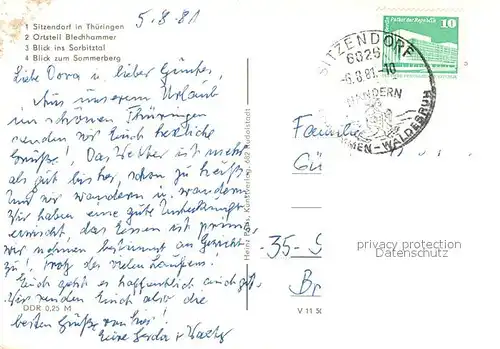 1 Sitzendorf in Thüringen
2 Ortsteil Blechhammer
3 Blick ins Sorbitztal
4 Blick zum Sommerberg
5.8.81
Liebe Dora u. lieber Günther,
Aus unserem Urlaub
im schönen Thüringen
senden wir Euch herzliche
Grüße! Das Wetter ist mehr
als gut bisher, schon zu heiß
und wir wandern u. wandern
Wir haben eine gute Unterkunft
erwischt, das Essen ist prima,
wir nehmen bestimmt an Gewicht
zu! Trotz des vielen Laufens!
Euch geht es hoffentlich auch gut.
Wir senden Euch also die
besten Grüße von hier!
Eure Gerda +
DDR 0,25 M
Heinz Kunstverlag, 682 Rudolstadt
V 11 50
Palast der Republik
10
SITZENDORF
6826
-6.8.81-10
WANDERN
WALDESRUH
Famili
Gü
-35- S
privacy protection
Datenschutz